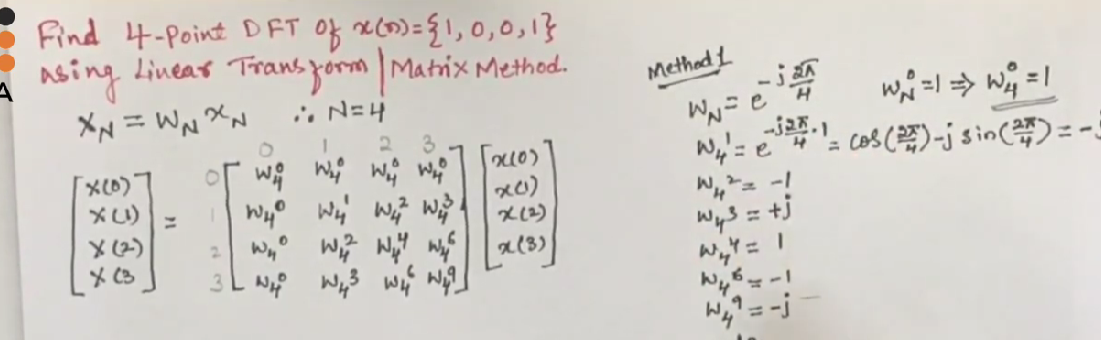 Find 4-Point DFT of x(n)={1,0,0,1}
using Linear Transform | Matrix Method.
X_N = W_N x_N ∴ N=4
0 1 2 3
[X(0)] 0 [W₄⁰ W₄⁰ W₄⁰ W₄⁰] [x(0)]
[X(1)] = 1 [W₄⁰ W₄¹ W₄² W₄³] [x(1)]
[X(2)] 2 [W₄⁰ W₄² W₄⁴ W₄⁶] [x(2)]
[X(3] 3 [W₄⁰ W₄³ W₄⁶ W₄⁹] [x(3)]
Method 1
W_N = e^(-j 2π/4) W_N⁰ =1 ⇒ W₄⁰ =1
W₄¹ = e^(-j2π/4 ·1) = cos(2π/4) -j sin(2π/4) = -j
W₄² = -1
W₄³ = +j
W₄⁴ = 1
W₄⁶ = -1
W₄⁹ = -j
A